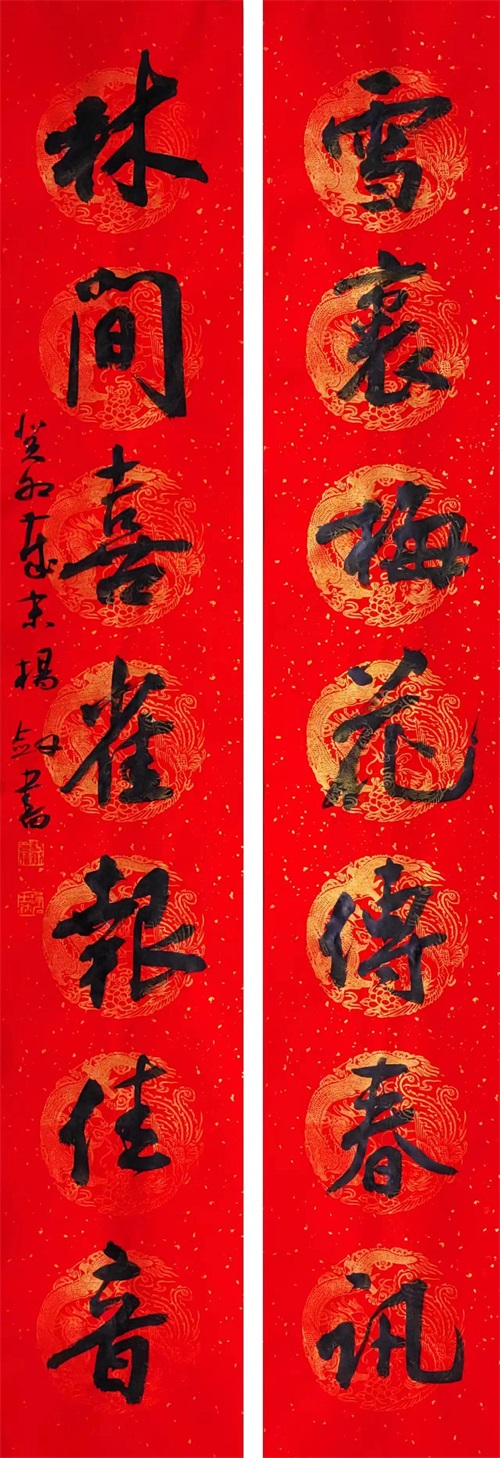 雪裏梅花傳春訊
林間喜雀報佳音
癸卯歲末楊剑書